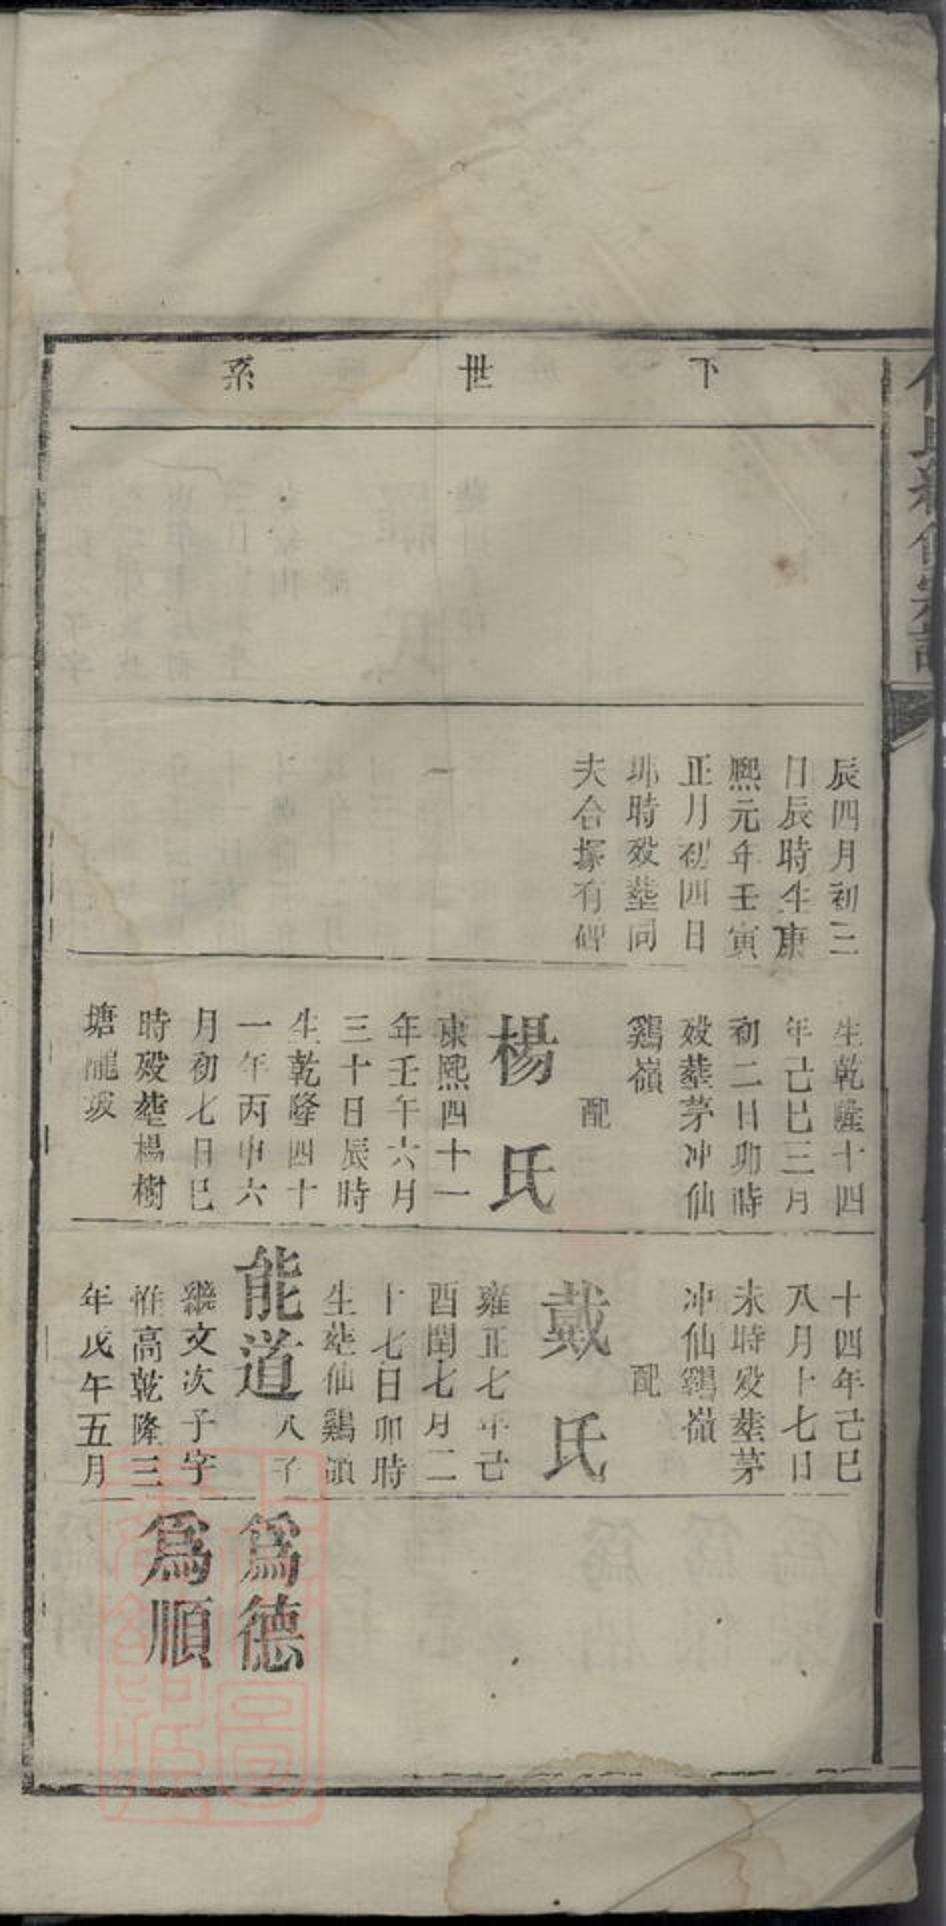 下世系
辰四月初三
日辰時生康
熙元年壬寅
正月初四日
卯時歿塟同
夫合塚有碑
生乾隆十四
年己巳三月
初二日卯時
歿塟茅冲仙
鷄嶺
配
楊氏
康熙四十一
年壬午六月
三十日辰時
生乾隆四十
一年丙申六
月初七日巳
時歿塟楊樹
塘隴坡
十四年己巳
八月十七日
未時歿塟茅
冲仙鷄嶺
配
戴氏
雍正七年己
酉閏七月二
十七日卯時
生塟仙鷄嶺
能道
八子
繞文次子字
惟高乾隆三
年戊午五月
爲德
爲順